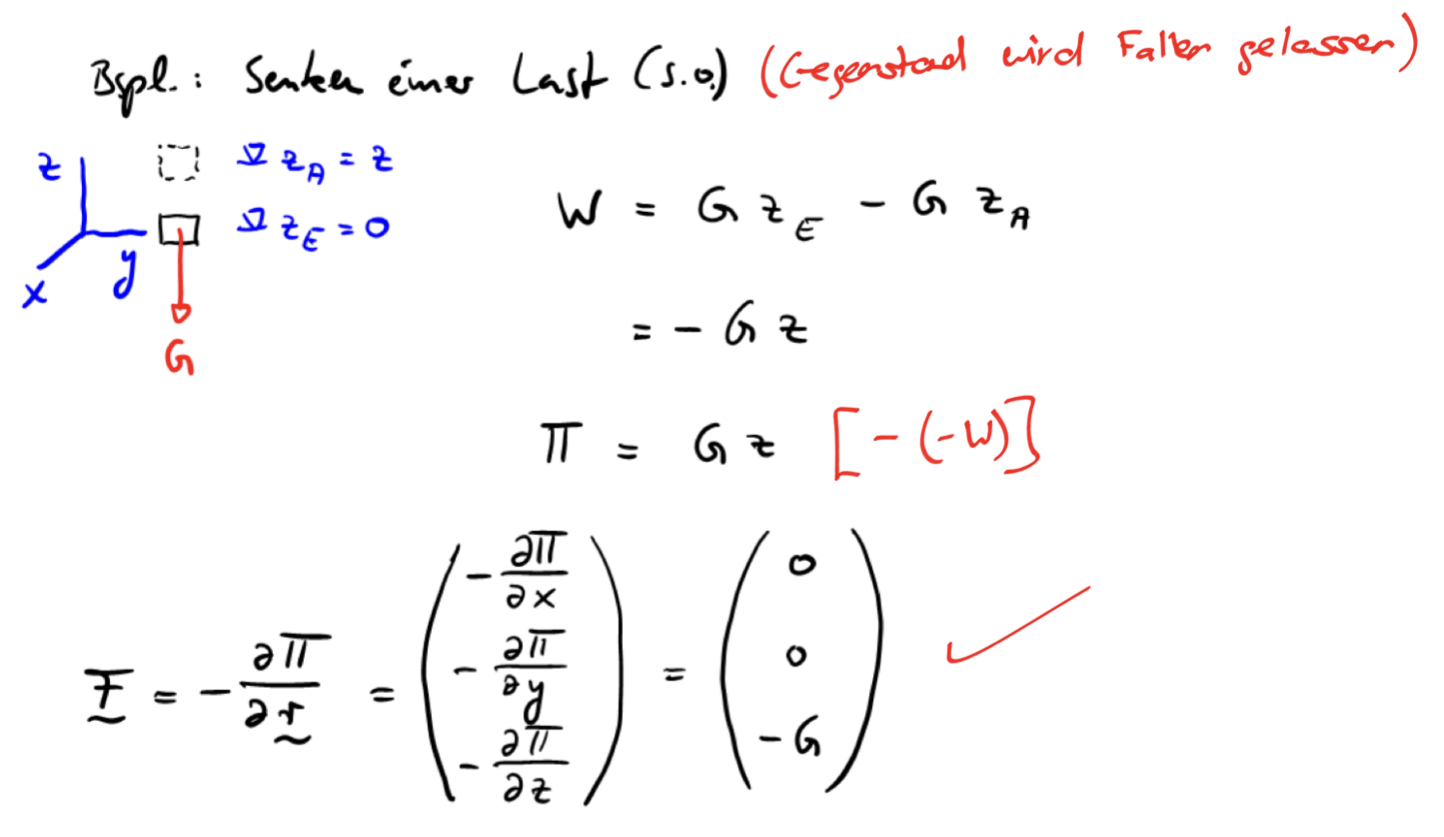 Bspl.: Senken einer Last (s.o.) (Gegenstand wird Fallen gelassen)
z
∇ z_A = z
∇ z_E = 0
x y
G
W = G z_E - G z_A
= - G z
Π = G z [-(-W)]
F = - ∂Π/∂r = ( - ∂Π/∂x  - ∂Π/∂y  - ∂Π/∂z ) = ( 0  0  - G )